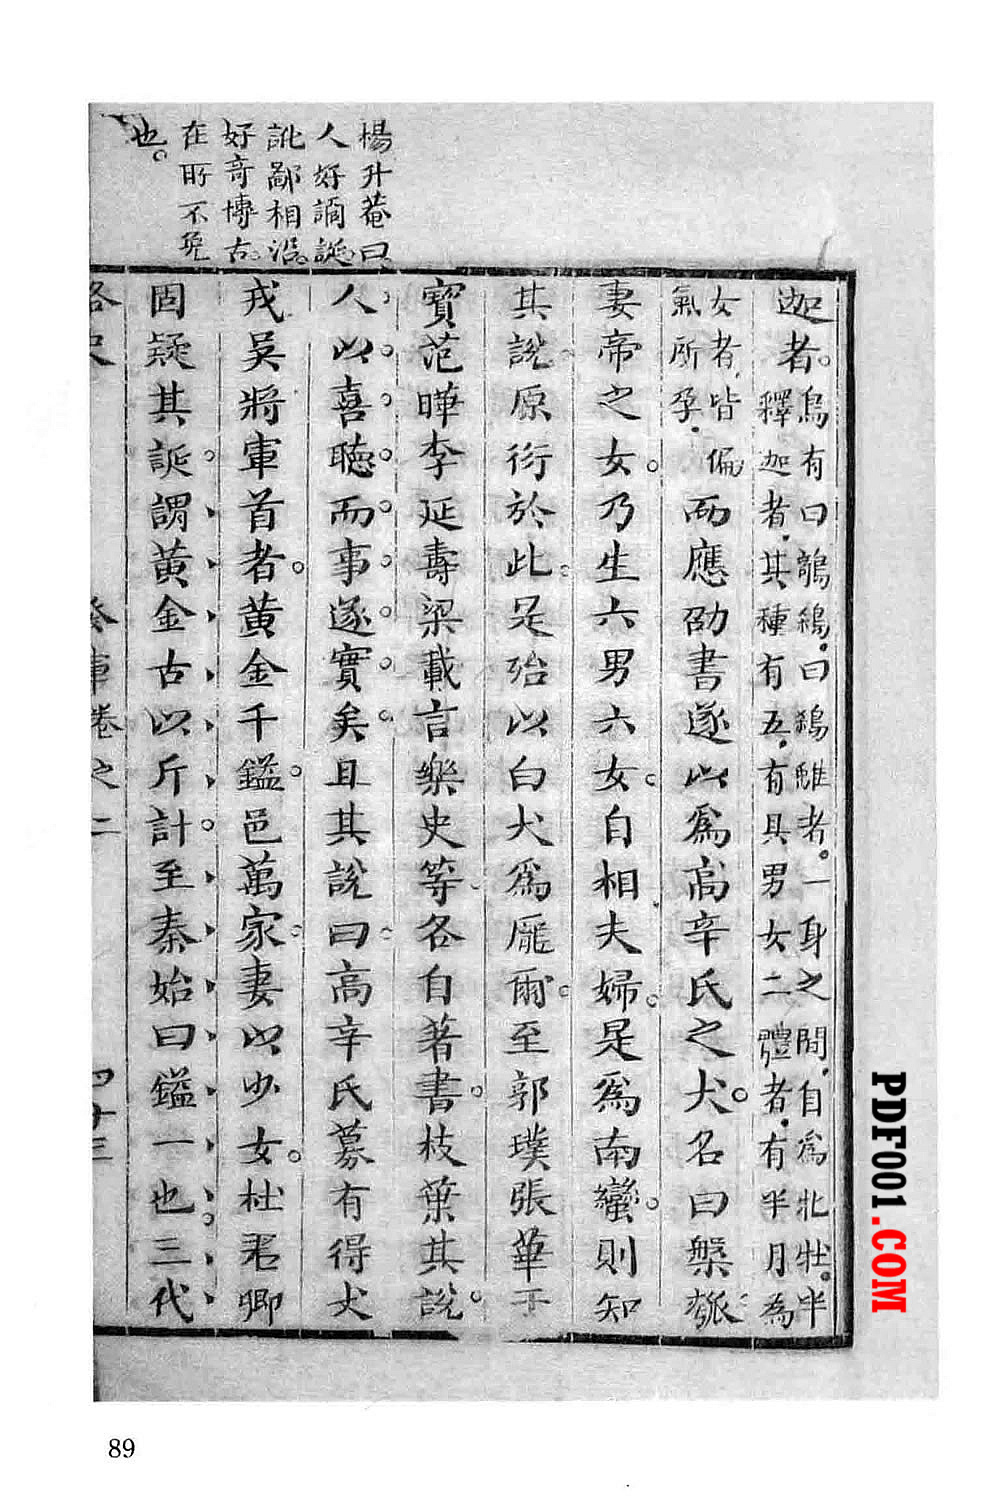 楊升菴曰
人好謫誕
訛鄙相沿
好奇博古
在所不免
也
迦者烏有曰鶕鶉曰鵽雖者一身之間自爲牝牡半
釋迦者其種有五有具男女二體者有半月為
女者皆偏
氣所孕
而應劭書遂以爲高辛氏之犬名曰槃瓠
妻帝之女乃生六男六女自相夫婦是爲南蠻則知
其說原衍於此是殆以白犬爲厖爾至郭璞張華干
寶范曄李延壽梁載言樂史等各自著書枝葉其說
人以喜聽而事遂實矣且其說曰高辛氏募有得犬
戎吳將軍首者黄金千鎰邑萬家妻以少女杜君卿
固疑其誕謂黄金古以斤計至秦始曰鎰一也三代
路史
發車卷之二
四十三
89
PDF001.COM